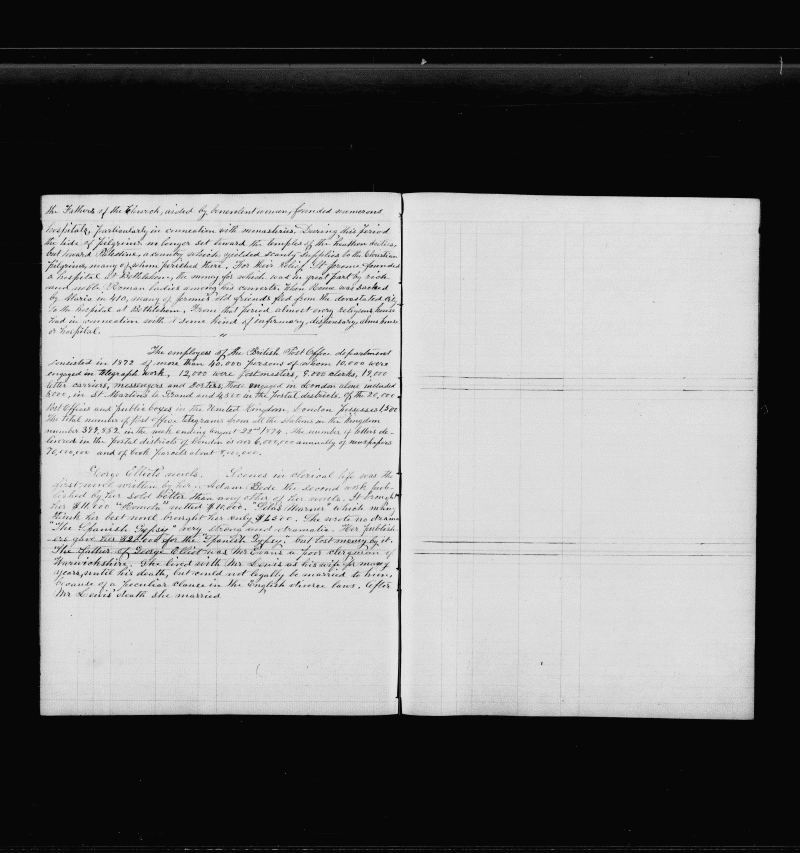 the Fathers of the Church, aided by benevolent women, founded numerous
hospitals, particularly in connection with monasteries. During this period
the tide of pilgrims no longer set toward the temples of the heathen deities,
but toward Palestine, a country which yielded scanty supplies to the Christian
pilgrims, many of whom perished there. For their relief St Jerome founded
a hospital at Bethlehem, the money for which was in great part by rich
and noble Roman ladies among his converts. When Rome was sacked
by Alaric in 410, many of Jerome's old friends fled from the devastated city
to the hospital at Bethlehem, From that period almost every religious house
had in connection with it some kind of infirmary, dispensary, alms house
or hospital.
The employees of the British Post Office department
consisted in 1872 of more than 40.000 persons of whom 10.000 were
engaged in telegraph work. 12,000 were postmasters, 9.000 clerks, 19,000
letter carriers, messengers and porters, those engaged in London alone included
5000, in St Martins le Grand and 4,500 in the postal districts. Of the 20,000
Post Offices and public boxes in the United Kingdom, London possesses 1,500
The total number of Post Office telegrams from all the stations in the Kingdom
number 399,552 in the week ending August 22nd 1874. The number of letters de-
livered in the postal districts of London is over 6,000,000 annually of newspapers
70,000,000 and of book parcels about
George Elliot's novels. Scenes in clerical life was the
first novel written by her. Adam Bede the second work pub-
lished by her sold better than any other of her novels. It brought
her "Romola" netted $10,000. "Silas Marner" which many
think her best novel brought her only $1500. She wrote no drama
"The Spanish Gypsy" very strong and dramatic. Her publish-
ers gave her for the "Spanish Gypsy." but lost money by it.
The father of George Elliot was Mr Evans a poor clergman of
Warwickshire. She lived with Mr Lewis as his wife for many
years, until his death, but could not legally be married to him,
because of a peculiar clause in the English divorce laws. After
Mr Lewis' death she married